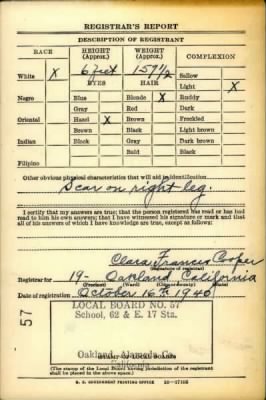 REGISTRAR'S REPORT
DESCRIPTION OF REGISTRANT
RACE HEIGHT (Approx.) WEIGHT (Approx.) COMPLEXION
White X 6 feet 159 1/2 Sallow
EYES HAIR Light X
Negro Blue Blonde X Ruddy
Gray Red Dark
Oriental Hazel X Brown Freckled
Brown Black Light brown
Indian Black Gray Dark brown
Bald Black
Filipino
Other obvious physical characteristics that will aid in identification
Scar on right leg.
I certify that my answers are true; that the person registered has read or has had
read to him his own answers; that I have witnessed his signature or mark and that
all of his answers of which I have knowledge are true, except as follows:
Clara Frances Cooper
(Signature of registrar)
Registrar for 19- Oakland California
(Precinct) (Ward) (City or county) (State)
Date of registration October 16th 1940
LOCAL BOARD NO. 57
School, 62 & E. 17 Sts.
57
Oakland, Alameda Co.
California
(STAMP OF LOCAL BOARD)
(The stamp of the Local Board having jurisdiction of the registrant
shall be placed in the above space.)
U. S. GOVERNMENT PRINTING OFFICE